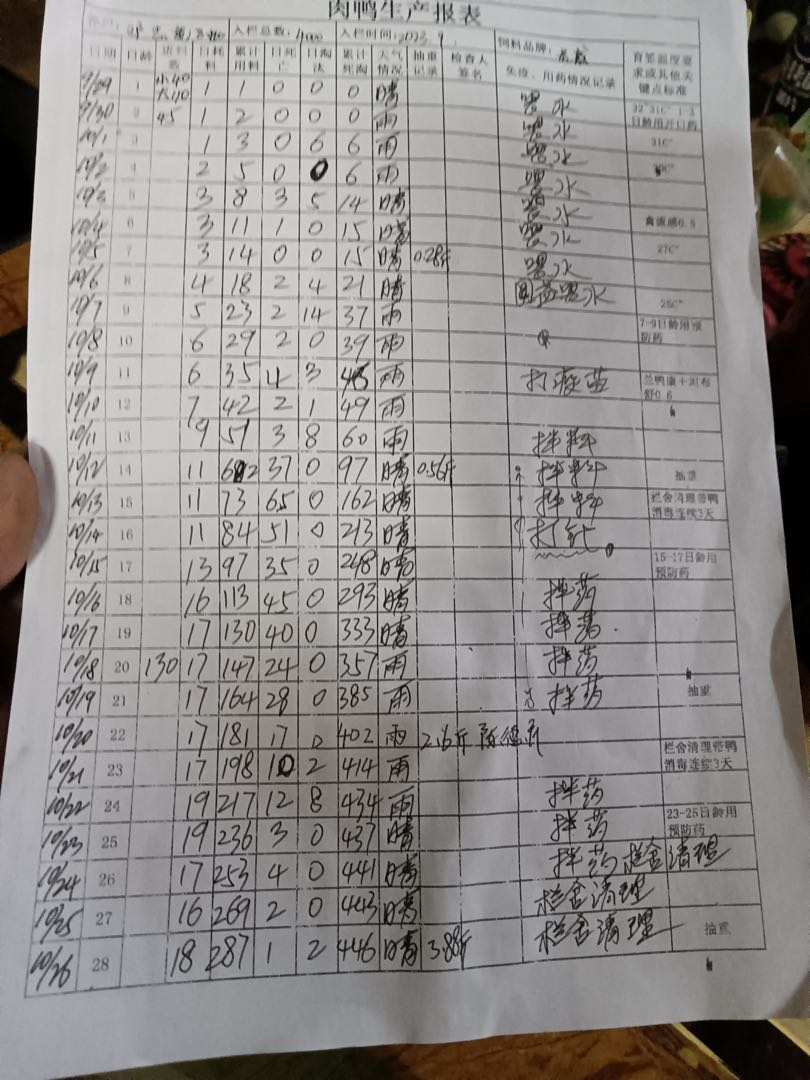 肉鸭生产报表
入栏总数: 4000 入栏时间: 2023.9. 饲料品牌:
日期 日龄 进料数 日耗料 累计用料 日死亡 日淘汰 累计死淘 天气情况 抽重记录 检查人签名 免疫、用药情况记录 育雏温度要求或其他关键点标准
9/29 1 小40 大110 1 1 0 0 0 晴
9/30 2 45 1 2 0 0 0 雨 水 32-31C° 1-3日龄用开口药
10/1 3 1 3 0 6 6 雨 水 31C°
10/2 4 2 5 0 0 6 雨 水
10/3 5 3 8 3 5 14 晴 水
10/4 6 3 11 1 0 15 晴 水 禽流感0.5
10/5 7 3 14 0 0 15 晴 0.28斤 水 27C°
10/6 8 4 18 2 4 21 晴 水
10/7 9 5 23 2 14 37 雨 25C°
10/8 10 6 29 2 0 39 雨 7-9日龄用预防药
10/9 11 6 35 4 3 46 雨 打疫苗
10/10 12 7 42 2 1 49 雨
10/11 13 9 51 3 8 60 雨 拌料
10/12 14 11 62 37 0 97 晴 0.56斤 拌料 抽重
10/13 15 11 73 65 0 162 晴 拌料 栏舍清理带鸭消毒连续3天
10/14 16 11 84 51 0 213 晴 打针
10/15 17 13 97 35 0 248 晴 15-17日龄用预防药
10/16 18 16 113 45 0 293 晴 拌药
10/17 19 17 130 40 0 333 晴 拌药
10/18 20 130 17 147 24 0 357 雨 拌药
10/19 21 17 164 28 0 385 雨 拌药 抽重
10/20 22 17 181 17 0 402 雨
10/21 23 17 198 10 2 414 雨 栏舍清理带鸭消毒连续3天
10/22 24 19 217 12 8 434 雨 拌药
10/23 25 19 236 3 0 437 晴 拌药 23-25日龄用预防药
10/24 26 17 253 4 0 441 晴 拌药 栏舍清理
10/25 27 16 269 2 0 443 晴 栏舍清理
10/26 28 18 287 1 2 446 晴 3.88斤 栏舍清理 抽重